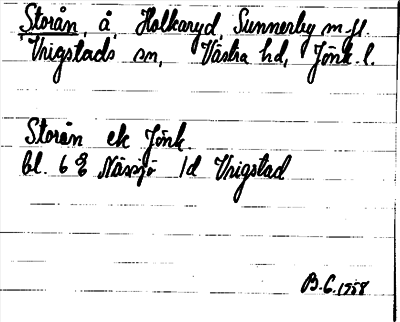 Storån, å, Holkaryd, Sunnerby m.fl.
Vrigstads sn, Västra hd, Jönk. l.
Storån ek Jönk.
bl. 6 E Nässjö 1d Vrigstad
B.G. 1958